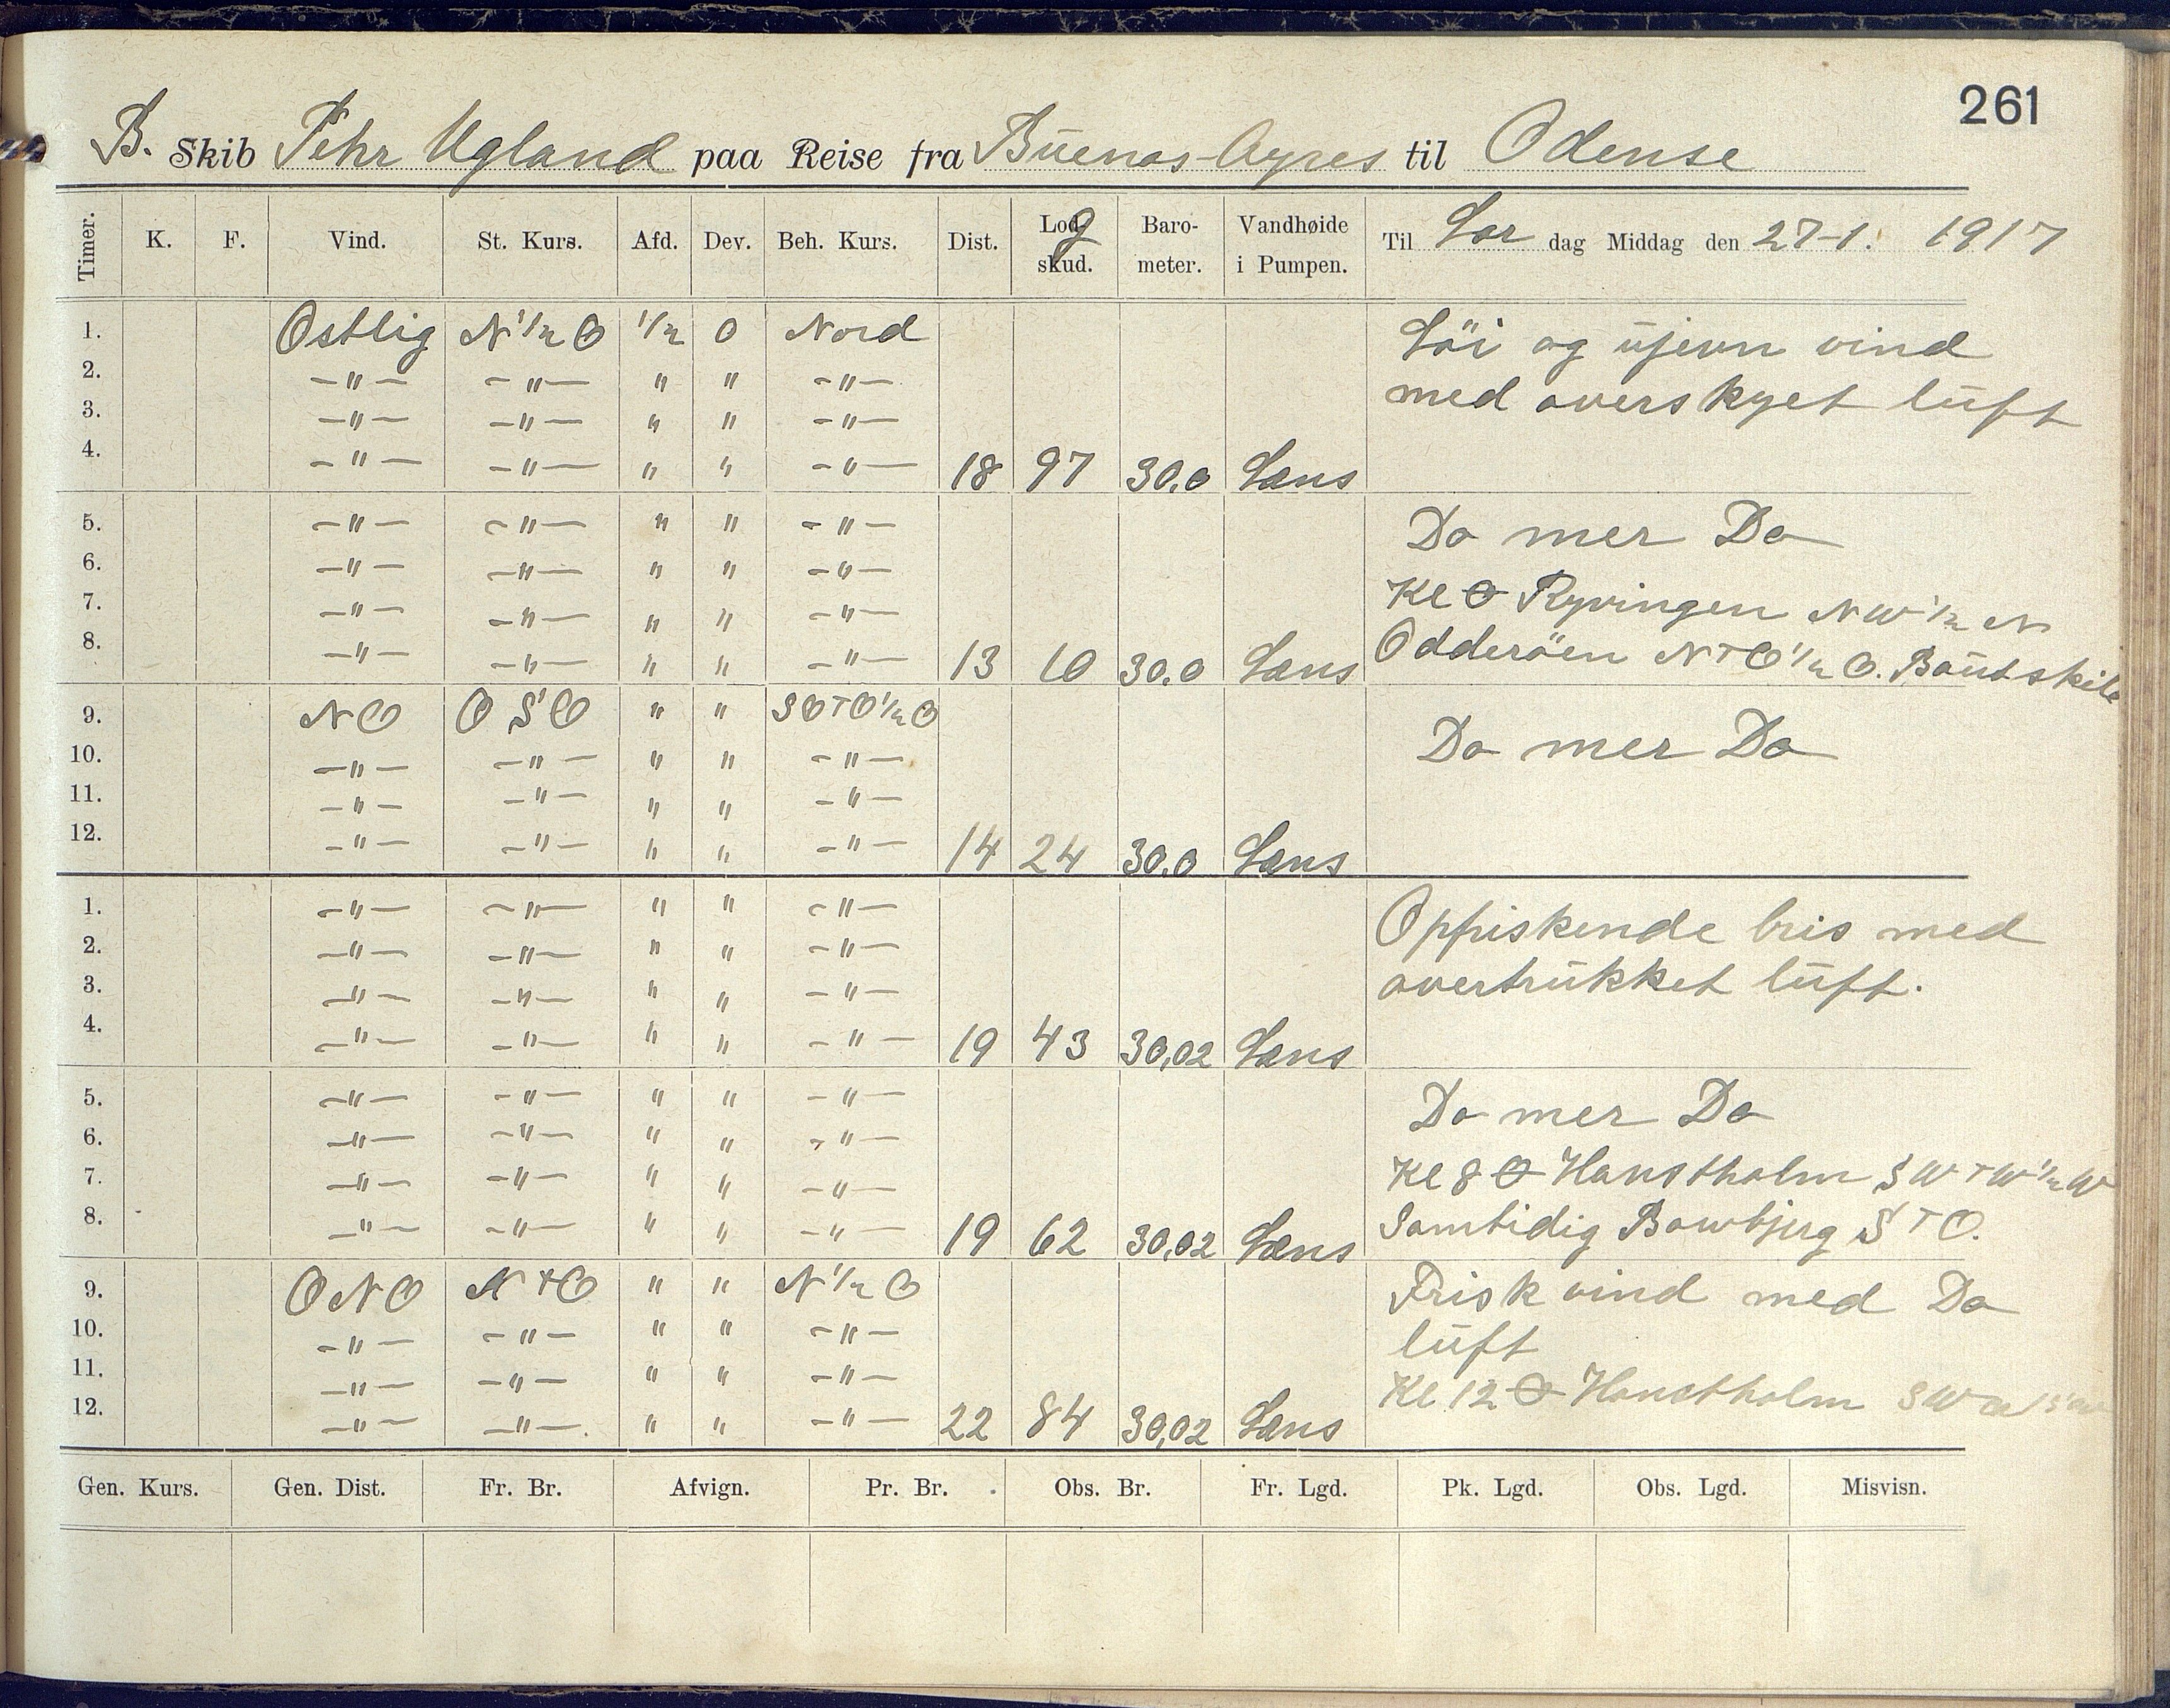 261
B. Skib Pehr Ugland paa Reise fra Buenos-Ayres til Odense
Timer. K. F. Vind. St. Kurs. Afd. Dev. Beh. Kurs. Dist. Lodg skud. Baro- meter. Vandhøide i Pumpen. Til Lør dag Middag den 27-1. 1917
1. Ostlig N 1/2 O 1/2 0 Nord Löi og ujevn vind
2. -"- -"- " " -"- med overskyet luft
3. -"- -"- " " -"-
4. -"- -"- " " -"- 18 97 30.0 Læns
5. -"- -"- " " -"- Do mer Do
6. -"- -"- " " -"- Kl Ryvingen NW 1/2 N
7. -"- -"- " " -"- Odderöen NTO 1/2 O.
8. -"- -"- " " -"- 13 10 30.0 Læns
9. NO OSO " " SOTO 1/2 O Do mer Do
10. -"- -"- " " -"-
11. -"- -"- " " -"-
12. -"- -"- " " -"- 14 24 30.0 Læns
1. -"- -"- " " -"- Opfriskende bris med
2. -"- -"- " " -"- overtrukket luft.
3. -"- -"- " " -"-
4. -"- -"- " " -"- 19 43 30,02 Læns
5. -"- -"- " " -"- Do mer Do
6. -"- -"- " " -"-
7. -"- -"- " " -"- Kl 8 Hanstholm SWTW 1/2 W
8. -"- -"- " " -"- 19 62 30,02 Læns Samtidig Bowbjerg STO.
9. ONO NTO " " N 1/2 O Frisk vind med Do
10. -"- -"- " " -"- luft
11. -"- -"- " " -"- Kl 12 Hanstholm
12. -"- -"- " " -"- 22 84 30,02 Læns
Gen. Kurs. Gen. Dist. Fr. Br. Afvign. Pr. Br. Obs. Br. Fr. Lgd. Pk. Lgd. Obs. Lgd. Misvisn.